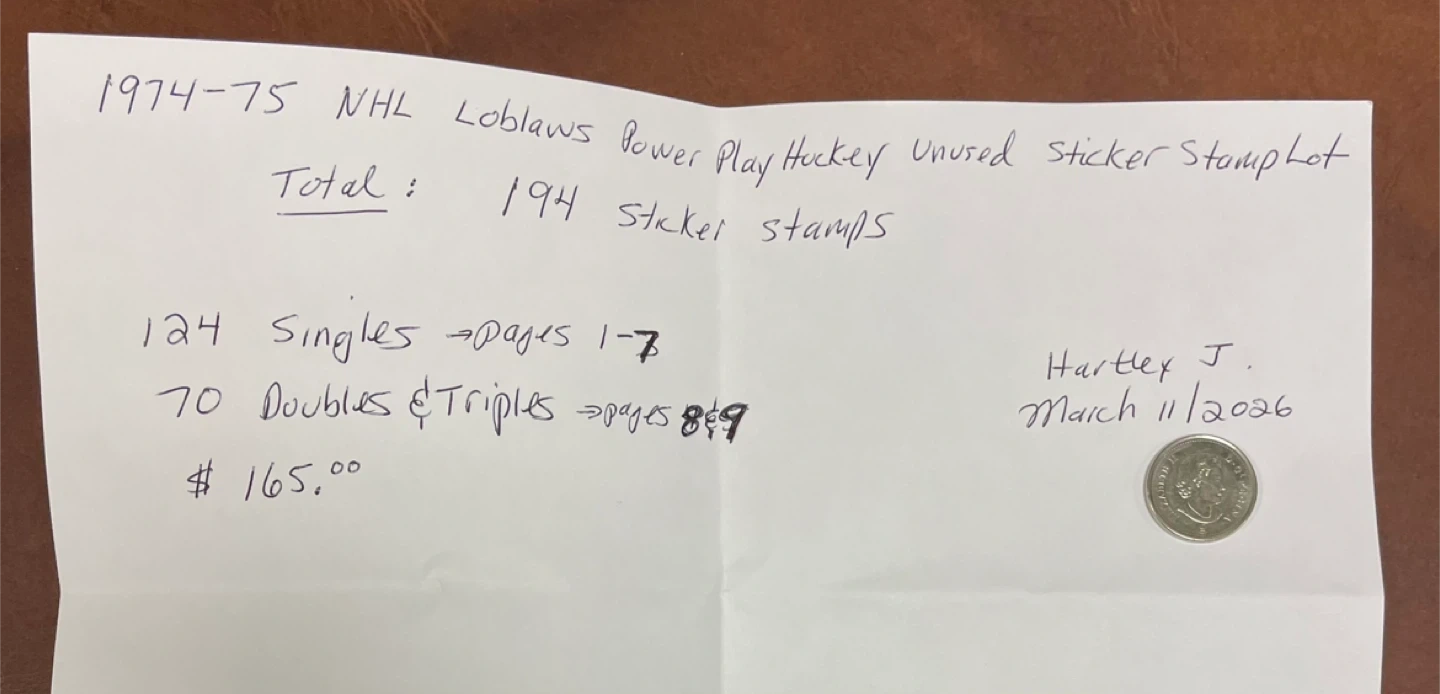 1974-75 NHL Loblaws Power Play Hockey Unused Sticker Stamp Lot
Total: 194 Sticker Stamps
124 Singles → pages 1-7
70 Doubles & Triples → pages 8&9
$ 165.00
Hartley J.
March 11/2026
ELIZABETH II D·G·REGINA